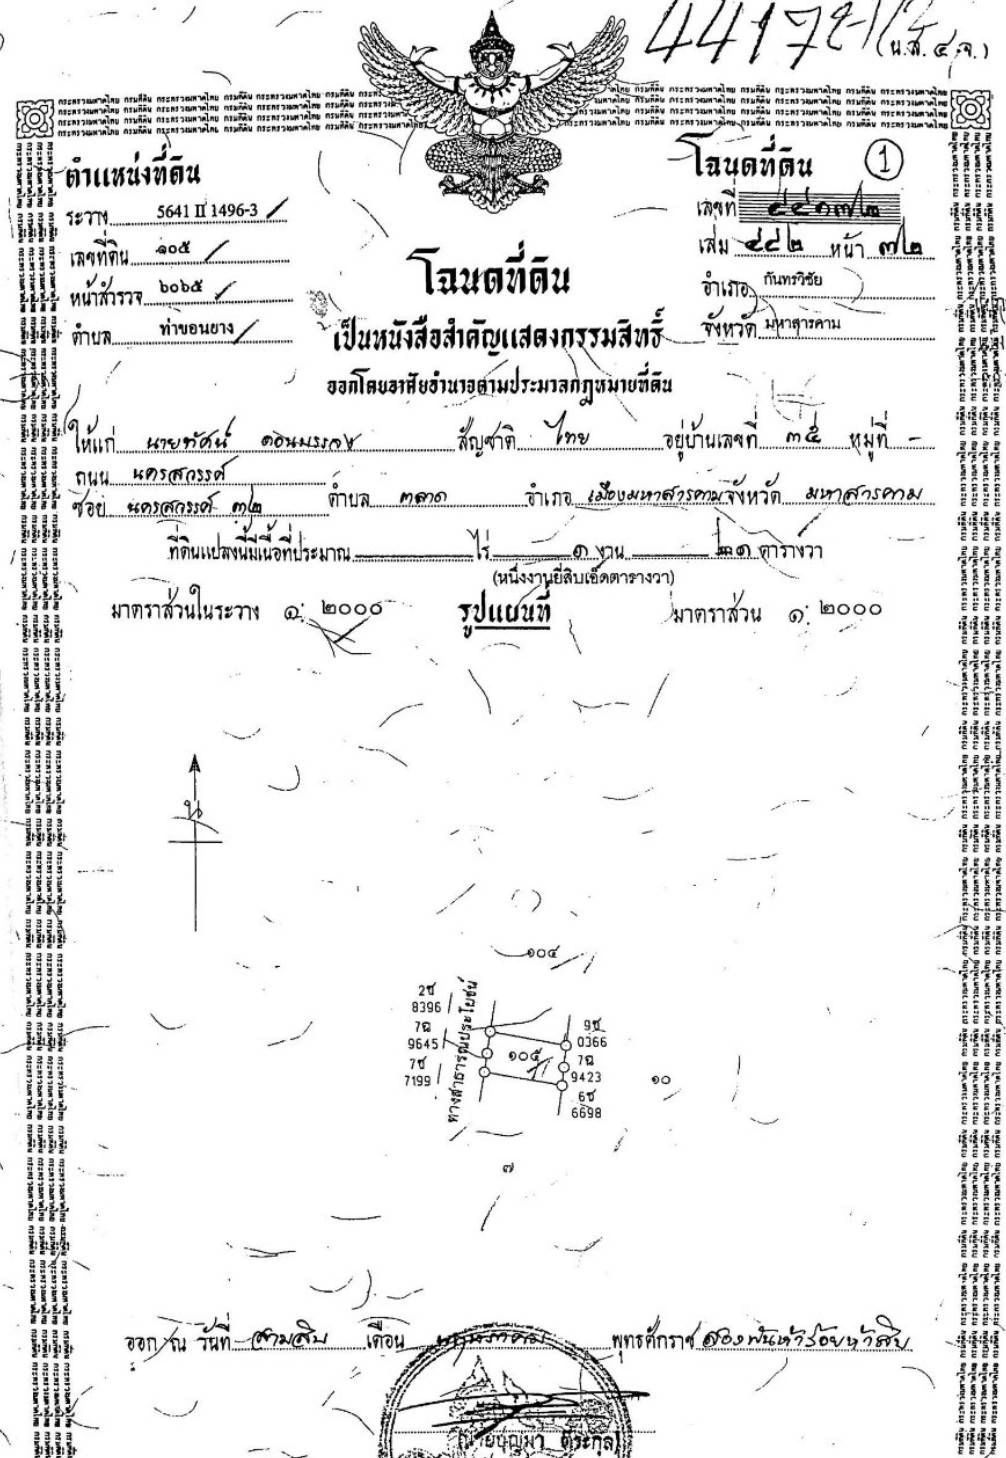 44172
(น.ส. ๔ จ.)
ตำแหน่งที่ดิน
ระวาง 5641 II 1496-3
เลขที่ดิน ๑๐๕
หน้าสำรวจ ๖๐๖๕
ตำบล ท่าขอนยาง
โฉนดที่ดิน
①
เลขที่ ๔๔๑๗๒
เล่ม ๔๔๒ หน้า ๗๒
อำเภอ กันทรวิชัย
จังหวัด มหาสารคาม
โฉนดที่ดิน
เป็นหนังสือสำคัญแสดงกรรมสิทธิ์
ออกโดยอาศัยอำนาจตามประมวลกฎหมายที่ดิน
ให้แก่ นายทัศน์ สัญชาติ ไทย อยู่บ้านเลขที่ ๓๕ หมู่ที่ -
ถนน นครสวรรค์
ซอย นครสวรรค์ ๓๒ ตำบล ตลาด อำเภอ เมืองมหาสารคาม จังหวัด มหาสารคาม
ที่ดินแปลงนี้มีเนื้อที่ประมาณ ไร่ ๑ งาน ๒๑ ตารางวา
(หนึ่งงานยี่สิบเอ็ดตารางวา)
มาตราส่วนในระวาง ๑: ๒๐๐๐ รูปแผนที่ มาตราส่วน ๑: ๒๐๐๐
น
๑๐๔
2ช
8396
7ฉ
9645
7ช
7199
ทางสาธารณประโยชน์
๑๐๕
9ช
0366
7ฉ
9423
6ช
6698
๑๐
๗
ออก ณ วันที่ สามสิบ เดือน พฤษภาคม พุทธศักราช สองพันห้าร้อยห้าสิบ